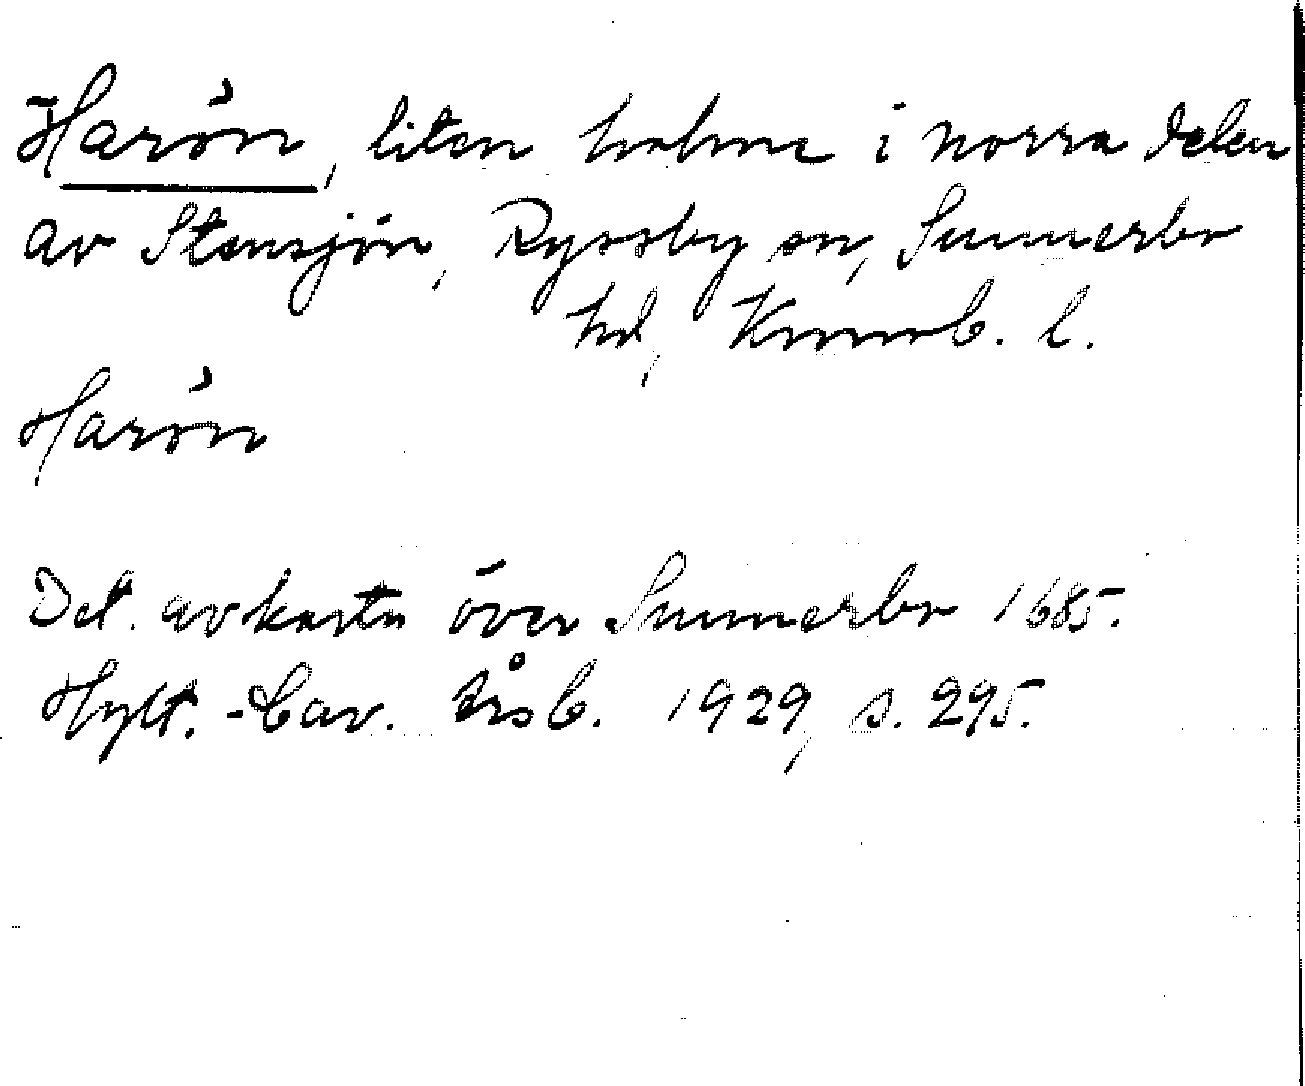 Harön, liten holme i norra delen
av Stensjön, Ryssby sn, Sunnerbo
hd, Kronob. l.
Harön
Det. av karta över Sunnerbo 1685.
Hylt.-Cav. årsb. 1929, s. 295.